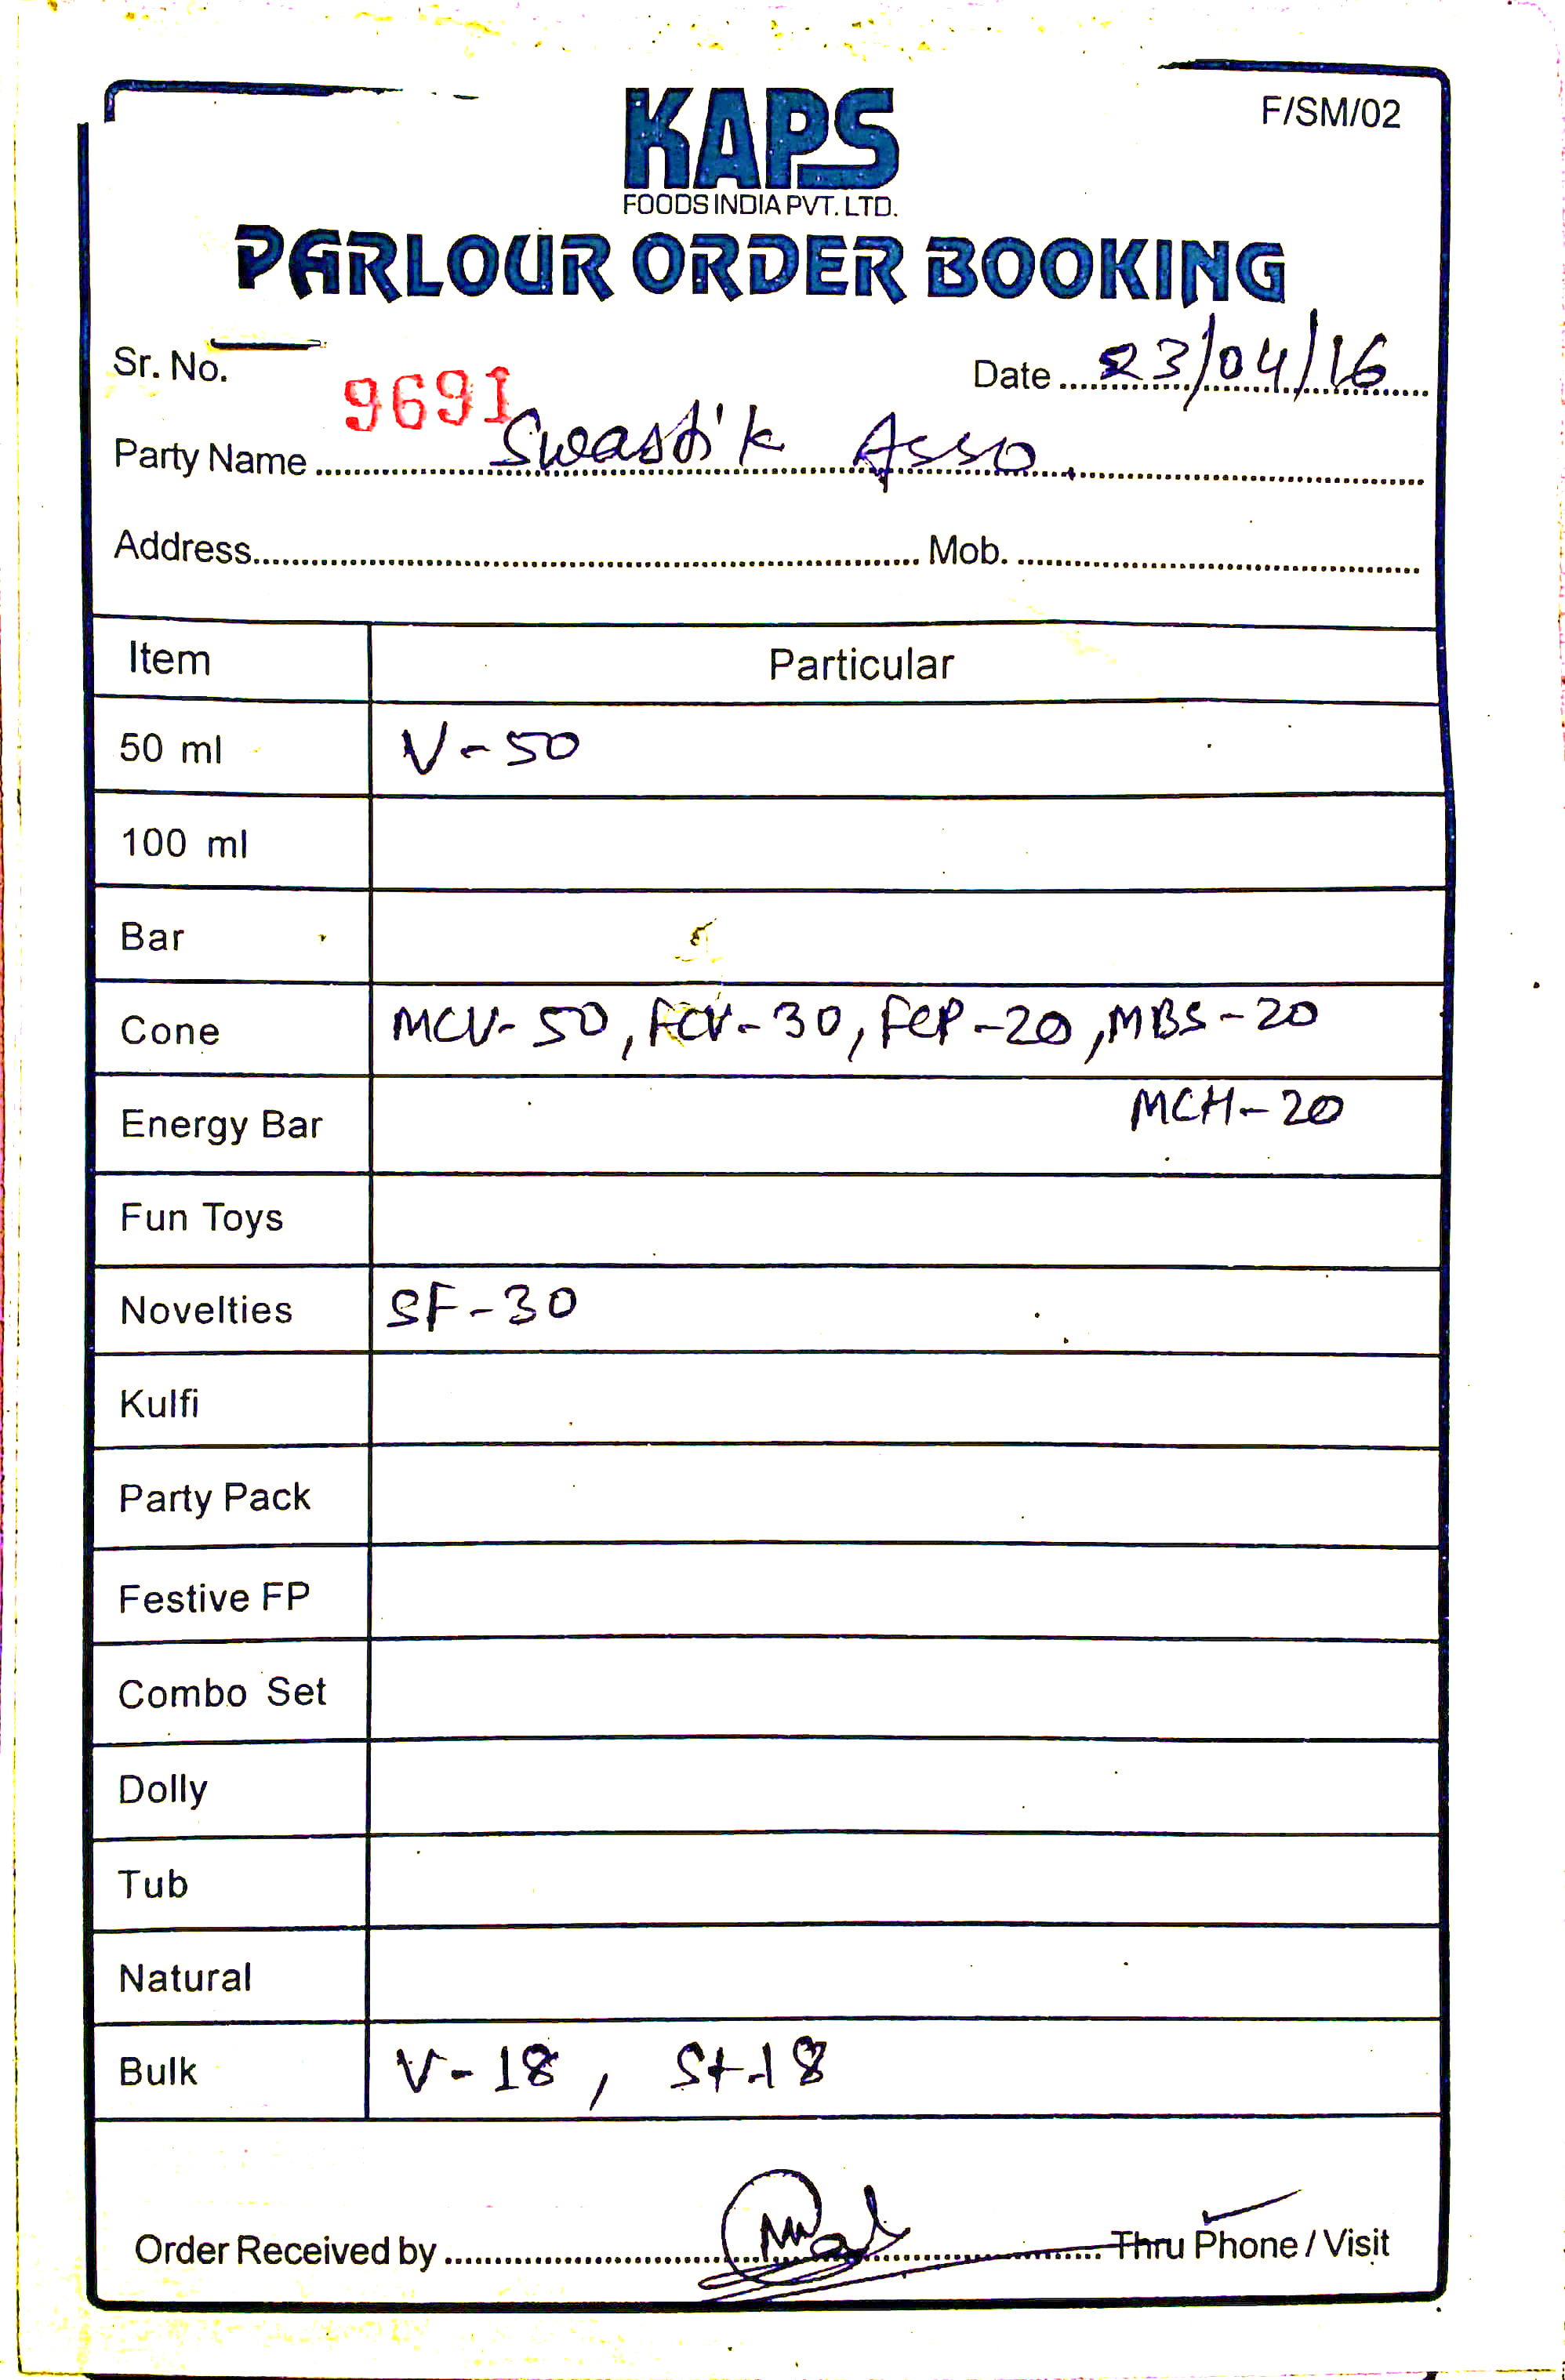 F/SM/02
KAPS
FOODS INDIA PVT. LTD.
PARLOUR ORDER BOOKING
Sr. No. 9691 Date 23/04/16
Party Name Swastik Asso.
Address Mob.
Item Particular
50 ml V-50
100 ml
Bar
Cone MCV-50, FCV-30, FCP-20, MBS-20
Energy Bar MCH-20
Fun Toys
Novelties SF-30
Kulfi
Party Pack
Festive FP
Combo Set
Dolly
Tub
Natural
Bulk V-18, St-18
Order Received by Thru Phone / Visit